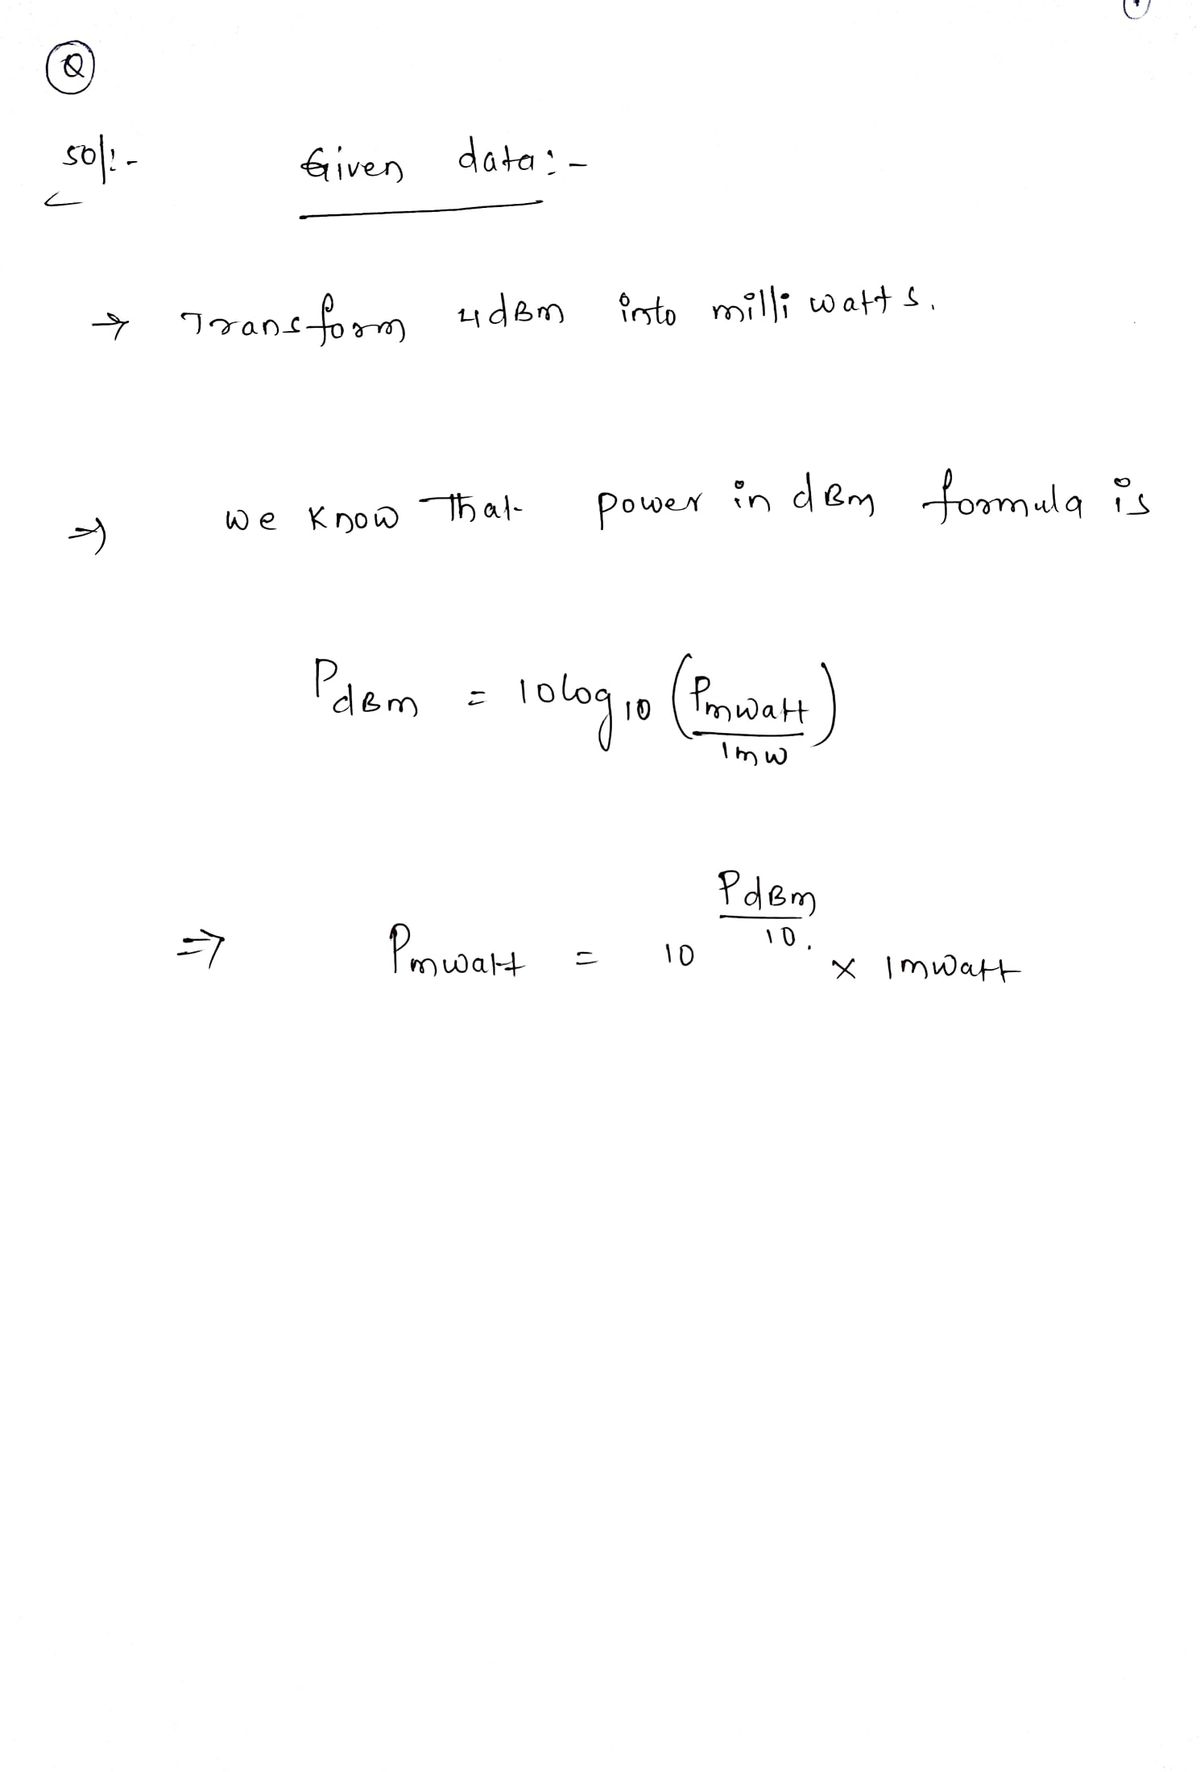 Q
Sol:-
Given data:-
→ Transform 4dBm into milli watts.
⇒ we know that power in dBm formula is
PdBm = 10log10 (Pmwatt/1mw)
⇒ Pmwatt = 10^(PdBm/10) × 1mwatt